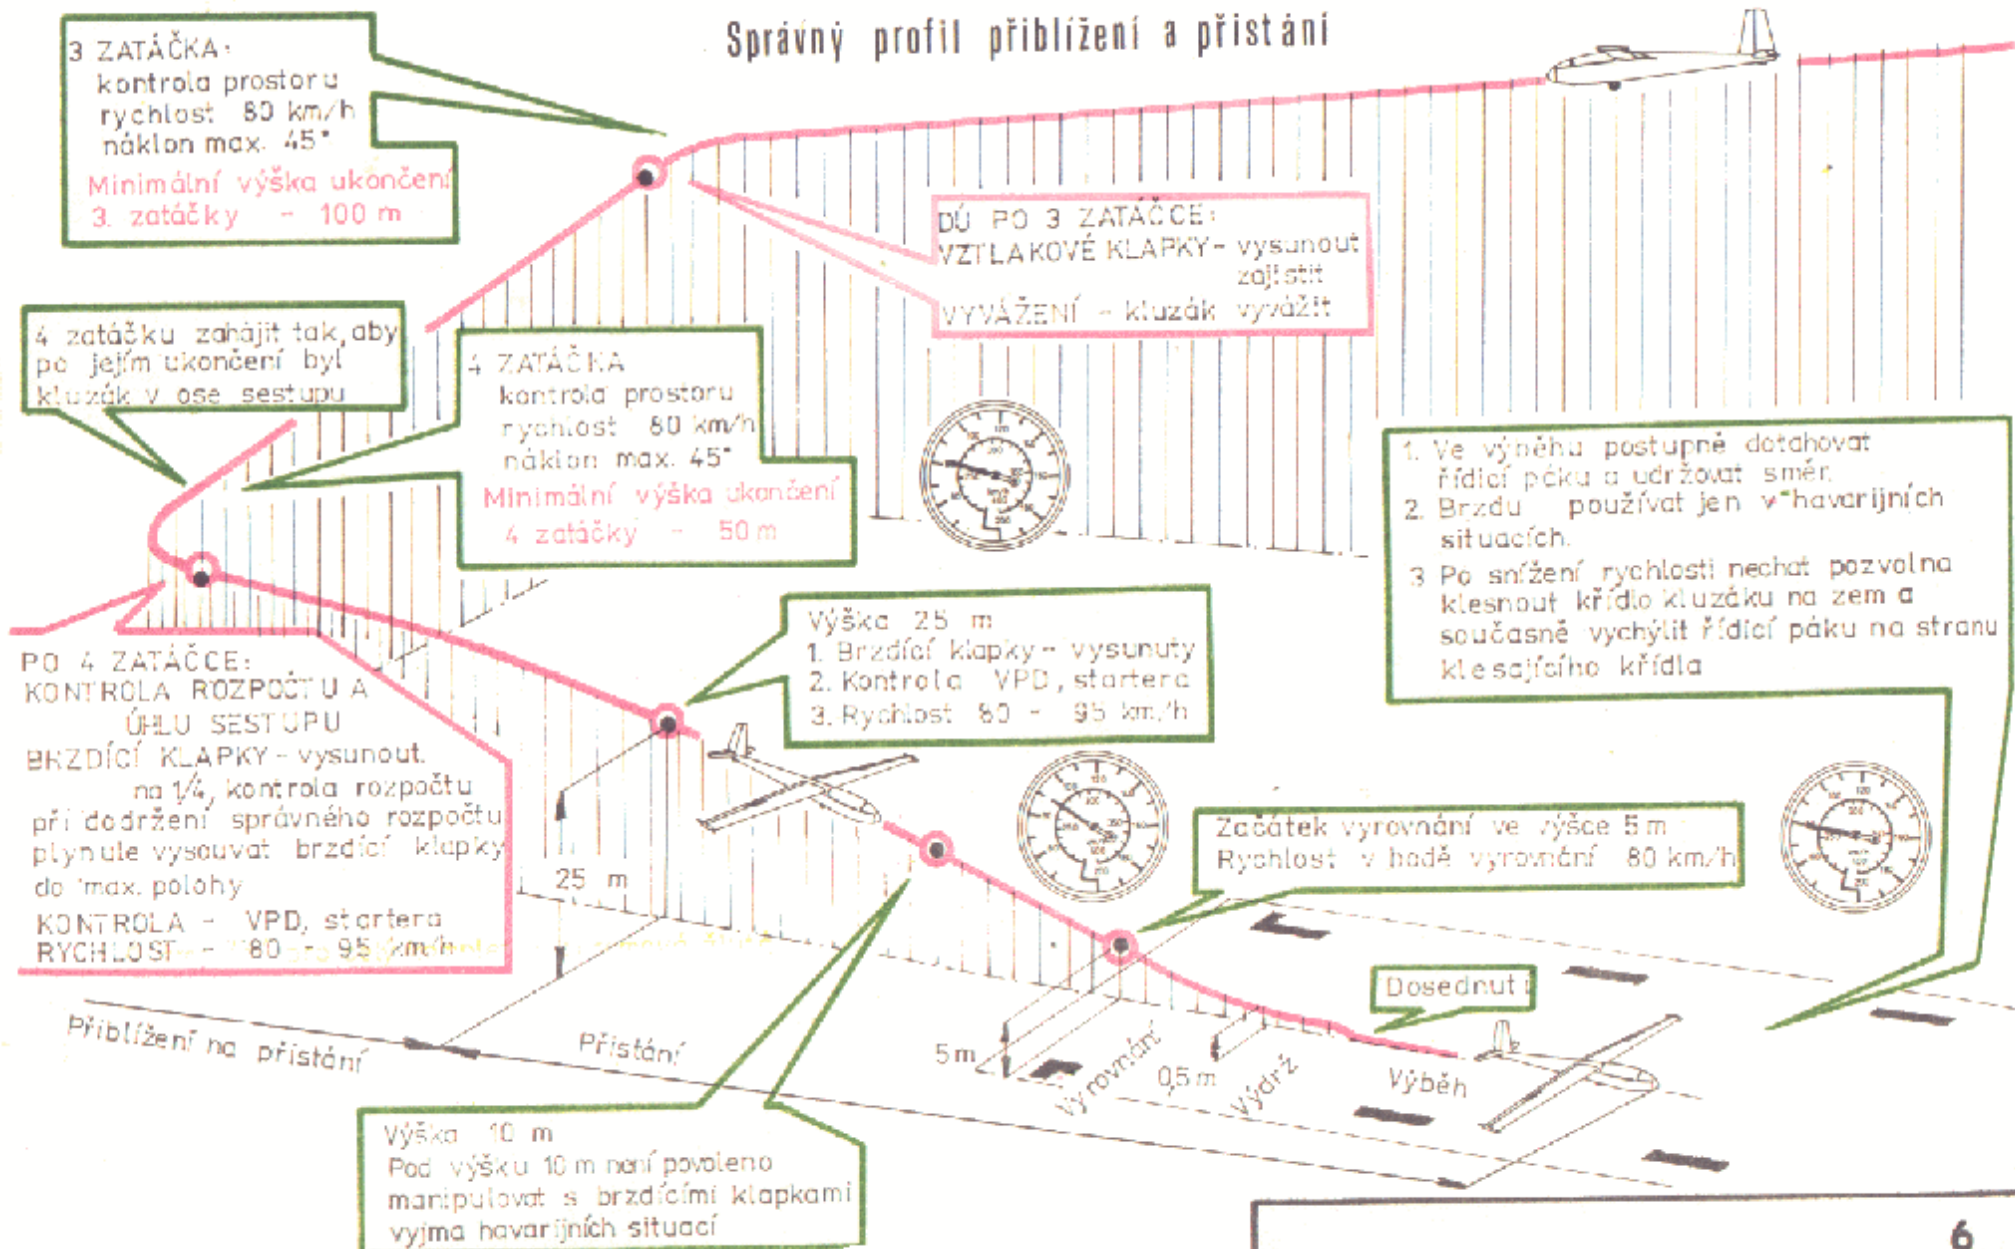 Správný profil přiblížení a přistání
3 ZATÁČKA:
kontrola prostoru
rychlost 80 km/h
náklon max. 45°
Minimální výška ukončení
3. zatáčky - 100 m
DÚ PO 3 ZATÁČCE:
VZTLAKOVÉ KLAPKY - vysunout
zajistit
VYVÁŽENÍ - kluzák vyvážit
4 zatáčku zahájit tak, aby
po jejím ukončení byl
kluzák v ose sestupu
4 ZATÁČKA
kontrola prostoru
rychlost 80 km/h
náklon max. 45°
Minimální výška ukončení
4 zatáčky - 50 m
1. Ve výběhu postupně dotahovat
řídicí páku a udržovat směr.
2. Brzdu používat jen v havarijních
situacích.
3 Po snížení rychlosti nechat pozvolna
klesnout křídlo kluzáku na zem a
současně vychýlit řídící páku na stranu
klesajícího křídla
PO 4 ZATÁČCE:
KONTROLA ROZPOČTU A
ÚHLU SESTUPU
BRZDÍCÍ KLAPKY - vysunout.
na 1/4, kontrola rozpočtu
při dodržení správného rozpočtu
plynule vysouvat brzdící klapky
do max. polohy
KONTROLA - VPD, startera
RYCHLOST - 80 - 95 km/h
Výška 25 m
1. Brzdící klapky - vysunuty
2. Kontrola VPD, startera
3. Rychlost 80 - 95 km/h
Začátek vyrovnání ve výšce 5 m
Rychlost v bodě vyrovnání 80 km/h
25 m
Dosednutí
Přiblížení na přistání
Přistání
5 m
Vyrovnání
0,5 m
Výdrž
Výběh
Výška 10 m
Pod výšku 10 m není povoleno
manipulovat s brzdícími klapkami
vyjma havarijních situací
6